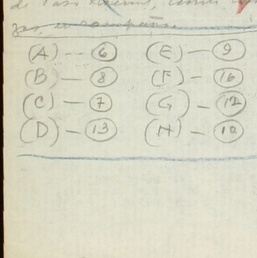 (A) -- 6 (E) — 9
(B) — 8 (F) — 16
(C) — 7 (G) — 12
(D) — 13 (H) — 10